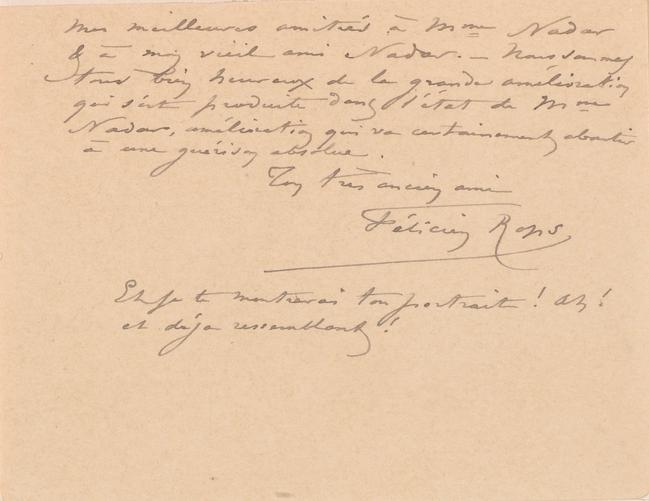 Mes meilleures amitiés à Mme Nadar
& à mon vieil ami Nadar. — Nous sommes
tous bien heureux de la grande amélioration
qui s'est produite dans l'état de Mme
Nadar, amélioration qui va certainement aboutir
à une guérison absolue.
Ton très ancien ami
Félicien Rops
Et je te montrerai ton portrait ! Ah !
et déjà ressemblant !